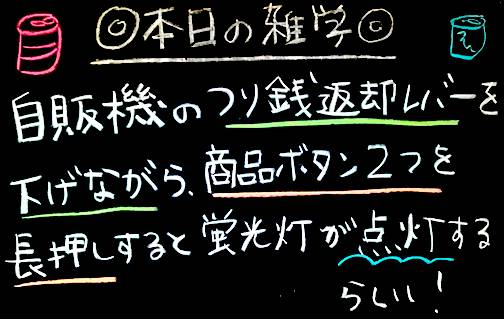 ◎本日の雑学◎
自販機のつり銭返却レバーを
下げながら、商品ボタン2つを
長押しすると蛍光灯が点灯する
らしい!